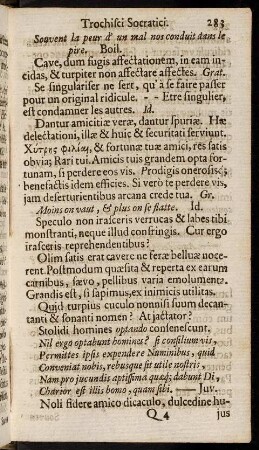 Trochisci Socratici. 283
Souvent la peur d' un mal nos conduit dans le
pire. Boil.
Cave, dum fugis affectationem, in eam in-
cidas, & turpiter non affectare affectes. Grat.
Se singulariser ne sert, qu'a se faire passer
pour un original ridicule. -- Etre singulier,
est condamner les autres. Id.
Dantur amicitiæ veræ, dantur spuriæ. Hæ
delectationi, illæ & huic & securitati serviunt.
Χύτρης φιλίαν, & fortunæ tuæ amici, res satis
obvia; Rari tui. Amicis tuis grandem opta for-
tunam, si perdere eos vis. Prodigis onerosis;
benefactis idem efficies. Si vero te perdere vis,
jam deserturientibus arcana crede tua. Gr.
Moins on vaut, & plus on se flatte. Id.
Speculo non irasceris verrucas & labes tibi
monstranti, neque illud confringis. Cur ergo
irasceris reprehendentibus?
Olim satis erat cavere ne feræ belluæ noce-
rent. Postmodum quæsita & reperta ex earum
carnibus, sævo, pellibus varia emolumenta.
Grandis est, si sapimus, ex inimicis utilitas.
Quid turpius cuculo nonnisi suum decan-
tanti & sonanti nomen? At jactator?
Stolidi homines optando consenescunt.
Nil ergo optabunt homines? si consilium vis,
Permittes ipsis expendere Numinibus, quid
Conveniat nobis, rebusque sit utile nostris,
Nam pro jucundis aptissima quæq; dabunt Di,
Charior est illis homo, quam sibi. — Juv.
Noli fidere amico dicaculo, dulcedine hu-
Q 4 jus